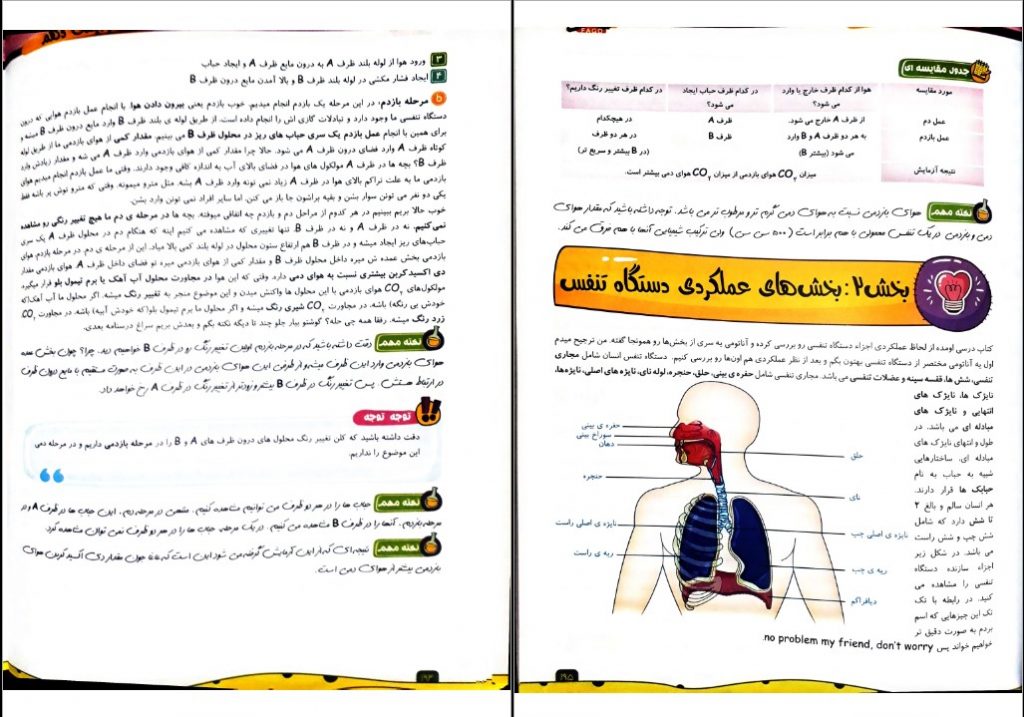 ۳ ورود هوا از لوله بلند ظرف A به درون مایع ظرف A و ایجاد حباب
۴ ایجاد فشار مکشی در لوله بلند ظرف B و بالا آمدن مایع درون ظرف B
b مرحله بازدم، در این مرحله یک بازدم انجام میدیم. خوب بازدم یعنی بیرون دادن هوا. با انجام عمل بازدم هوایی که درون
دستگاه تنفسی ما وجود دارد و تبادلات گازی اش را انجام داده است. از طریق لوله ی بلند ظرف B وارد مایع درون ظرف B میشه و
برای همین با انجام عمل بازدم یک سری حباب های ریز در محلول ظرف B می بینیم. مقدار کمی از هوای بازدمی ما از طریق لوله
کوتاه ظرف A وارد فضای درون ظرف A می شود. حالا چرا مقدار کمی از هوای بازدمی وارد ظرف A می شه و مقدار زیادش وارد
ظرف B؟ بچه ها در ظرف A مولکول های هوا در فضای بالای آب به اندازه کافی وجود دارند. وقتی ما عمل بازدم انجام میدیم هوای
بازدمی ما به علت تراکم بالای هوا در ظرف A زیاد نمی تونه وارد ظرف A بشه. مثل مترو میمونه. وقتی که مترو توش پر باشه فقط
یکی دو نفر می تونن سوار بشن و بقیه براشون جا باز می کنن. اما سایر افراد نمی تونن وارد بشن.
خوب حالا بریم ببینیم در هر کدوم از مراحل دم و بازدم چه اتفاقی میوفته. بچه ها در مرحله ی دم ما هیچ تغییر رنگی رو مشاهده
نمی کنیم. نه در ظرف A و نه در ظرف B. تنها تغییری که مشاهده می کنیم اینه که هنگام دم در محلول ظرف A یک سری
حباب‌های ریز ایجاد میشه و در ظرف B هم ارتفاع ستون محلول در لوله بلند کمی بالا میاد. این از مرحله ی دم. در مرحله بازدم، هوای
بازدمی بخش عمده ش میره داخل محلول ظرف B و مقدار کمی از هوای بازدمی میره تو فضای داخل ظرف A. هوای بازدمی مقدار
دی اکسید کربن بیشتری نسبت به هوای دمی دارد. وقتی که این هوا در مجاورت محلول آب آهک یا برم تیمول بلو قرار میگیرد
مولکول‌های CO۲ هوای بازدمی با این محلول ها واکنش میدن و این موضوع منجر به تغییر رنگ میشه. اگر محلول ما آب آهک(که
خودش بی رنگه) باشه. در مجاورت CO۲ شیری رنگ میشه و اگر محلول ما برم تیمول بلو(که خودش آبیه) باشه. در مجاورت CO۲
زرد رنگ میشه. رفقا همه چی حله؟ گوشتو بیار جلو چند تا دیگه نکته بگم و بعدش بریم سراغ درسنامه بعدی.
نکته مهم دقت داشته باشید که در مرحله بازدم اولین تغییر رنگ رو در ظرف B خواهیم دید. چرا؟ چون بخش عمده
هوای بازدمی وارد این ظرف میشه و از طرفی این هوای بازدمی در این ظرف به صورت مستقیم با مایع درون ظرف
در ارتباط هستش. پس تغییر رنگ در ظرف B بیشتر و زودتر از تغییر رنگ در ظرف A رخ خواهد داد.
توجه توجه
دقت داشته باشید که کلن تغییر رنگ محلول های درون ظرف های A و B را در مرحله بازدمی داریم و در مرحله دمی
این موضوع را نداریم.
نکته مهم حباب ها را در هر دو ظرف می توانیم مشاهده کنیم. منتهی در مرحله دم، این حباب ها در ظرف A و در
مرحله بازدم، آنها را در ظرف B مشاهده می کنیم. در یک مرحله حباب ها را در هر دو ظرف نمی توان مشاهده کرد.
نکته مهم نتیجه ای که از این آزمایش گرفته می شود این است که
بازدمی بیشتر از هوای دمی است.
۱۹۴
جدول مقایسه ای
مورد مقایسه هوا از کدام ظرف خارج یا وارد می شود؟ در کدام ظرف حباب ایجاد می شود؟ در کدام ظرف تغییر رنگ داریم؟
عمل دم از ظرف A خارج می شود. ظرف A در هیچکدام
عمل بازدم به هر دو ظرف A و B وارد می شود (بیشتر B) ظرف B در هر دو ظرف (در B بیشتر و سریع تر)
نتیجه آزمایش میزان CO۲ هوای بازدمی از میزان CO۲ هوای دمی بیشتر است.
نکته مهم هوای بازدمی نسبت به هوای دمی گرم تر و مرطوب تر می باشد. توجه داشته باشید که مقدار هوای
دمی و بازدمی در یک تنفس معمولی با هم برابر است (۵۰۰ سی سی) ولی ترکیب شیمیایی آنها با هم فرق می کند.
بخش ۲: بخش‌های عملکردی دستگاه تنفس
کتاب درسی اومده از لحاظ عملکردی اجزاء دستگاه تنفسی رو بررسی کرده و آناتومی یه سری از بخش‌ها رو همونجا گفته. من ترجیح میدم
اول یه آناتومی مختصر از دستگاه تنفسی بهتون بگم و بعد از نظر عملکردی هم اون‌ها رو بررسی کنیم. دستگاه تنفس انسان شامل مجاری
تنفسی، شش ها، قفسه سینه و عضلات تنفسی می باشد. مجاری تنفسی شامل حفره ی بینی، حلق، حنجره، لوله نای، نایژه های اصلی، نایژه‌ها،
نایژک ها، نایژک های
انتهایی و نایژک های
مبادله ای می باشد. در
طول و انتهای نایژک های
مبادله ای، ساختارهایی
شبیه به حباب به نام
حبابک ها قرار دارند.
هر انسان سالم و بالغ ۲
تا شش دارد که شامل
شش چپ و شش راست
می باشد. در شکل زیر
اجزاء سازنده دستگاه
تنفسی را مشاهده می
کنید. در رابطه با تک
تک این چیزهایی که اسم
بردم به صورت دقیق تر
خواهیم خواند پس no problem my friend, don't worry.
حفره ی بینی
سوراخ بینی
دهان
حنجره
نایژه ی اصلی راست
ریه ی راست
حلق
نای
نایژه ی اصلی چپ
ریه ی چپ
دیافراگم
۱۹۵